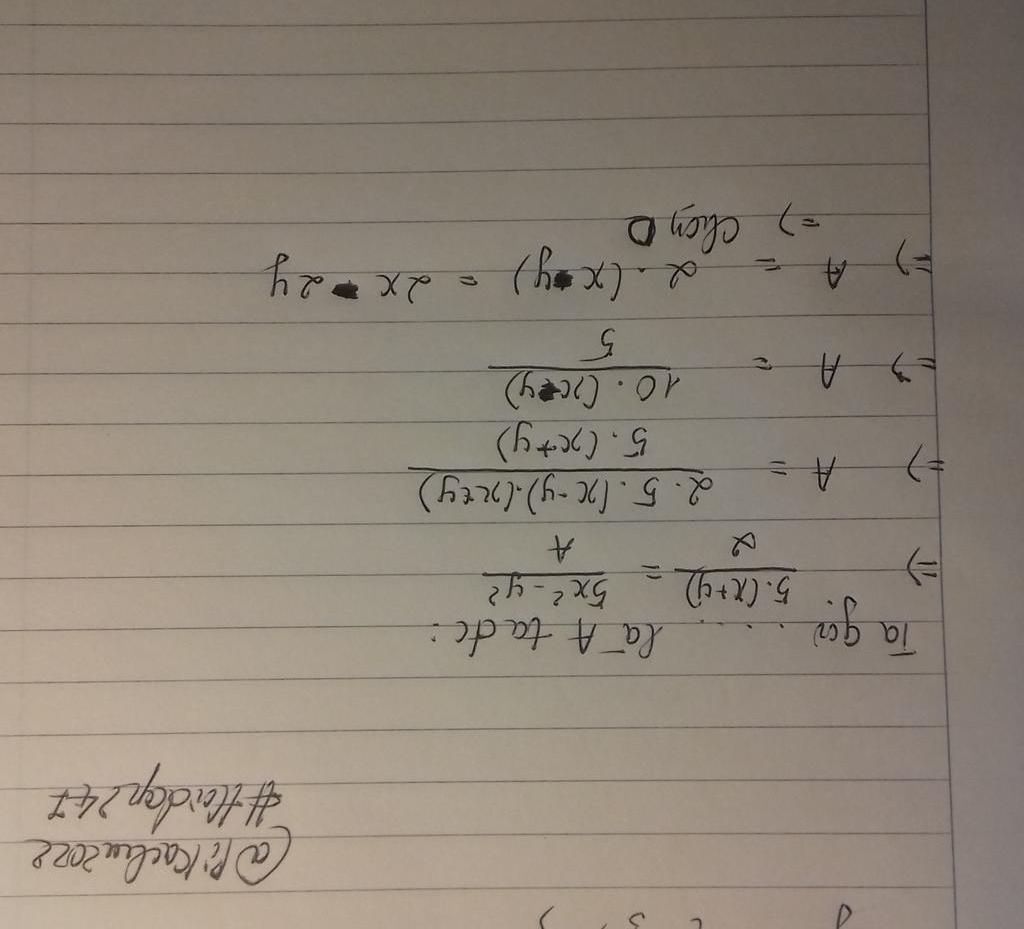 @PiKachu2022
#Hoidap247
Ta gọi ..... là A ta đc:
=> 5.(x+y)/2 = 5x²-y²/A
=> A = 2.5.(x-y).(x+y)/5.(x+y)
=> A = 10.(x-y)/5
=> A = 2.(x-y) = 2x - 2y
=> Chọn D